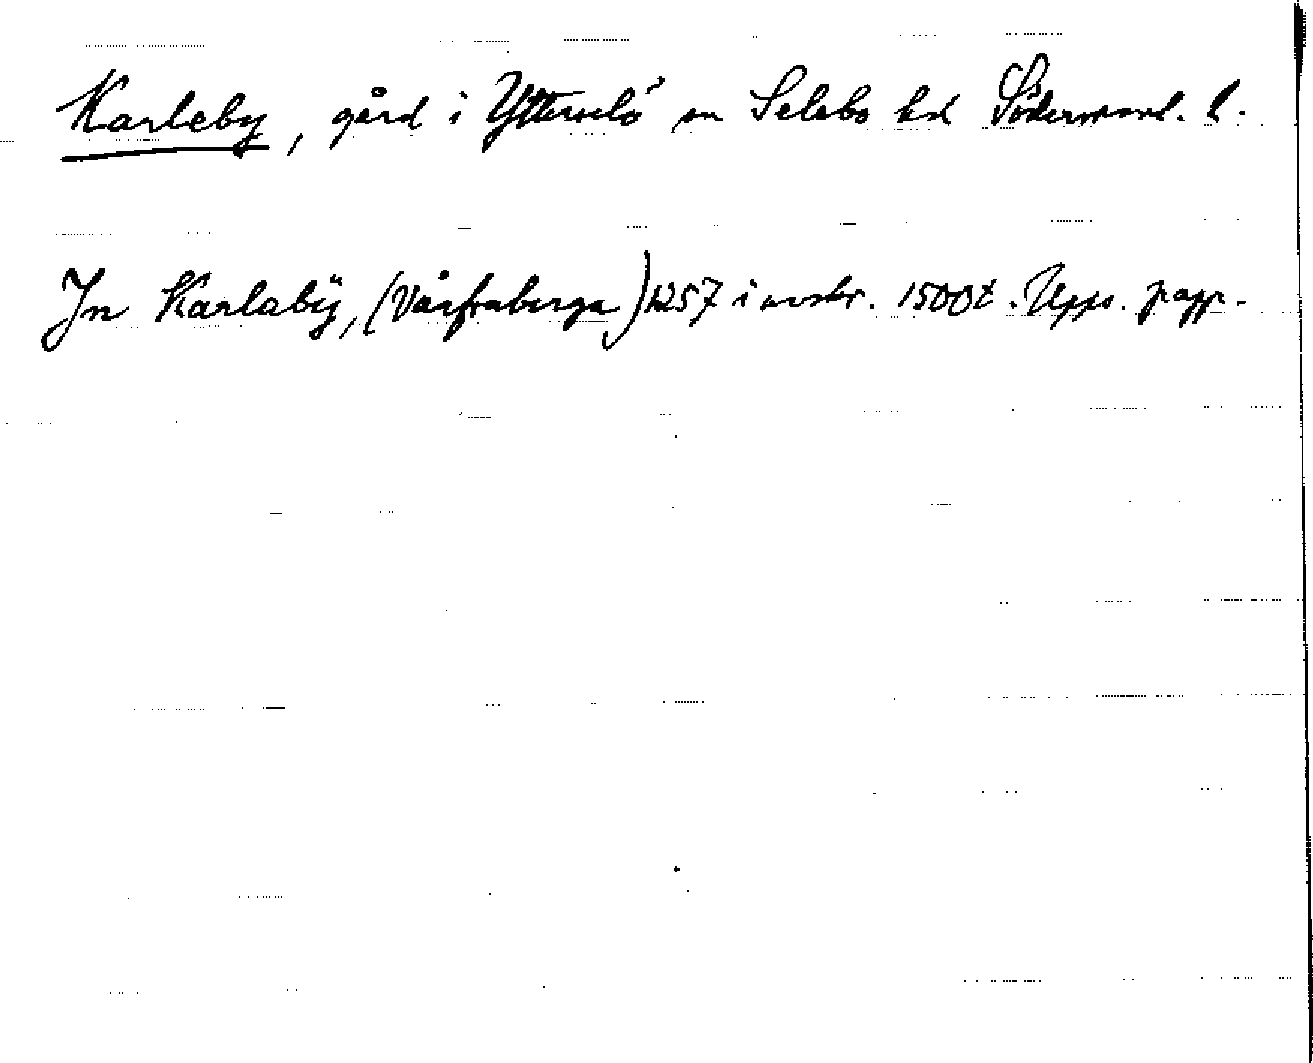 Karleby, gård i Ytterselö sn Selebo hd Södermanl. l.
Jn Karlabÿ, (Vårfruberga) 1257 i avskr. 1500t. Upps. papp.